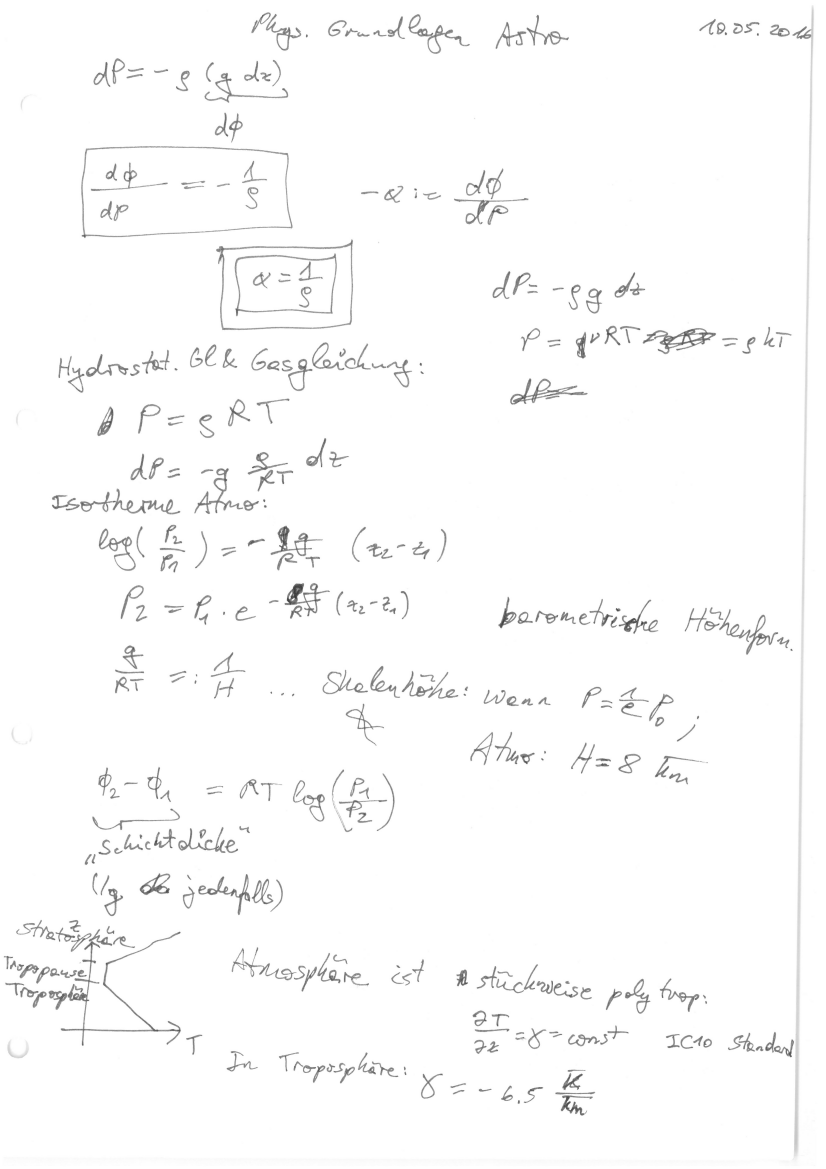 Phys. Grundlagen Astro 18.05.2016
dP = - ρ (g dz)
dϕ
dϕ/dP = - 1/ρ
-α := dϕ/dP
α = 1/ρ
dP = -ρg dz
P = RT = ρkT
dP =
Hydrostat. Gl & Gasgleichung:
P = ρ R T
dP = -g ρ/RT dz
Isotherme Atmo:
log(P₂/P₁) = - g/RT (z₂-z₁)
P₂ = P₁ · e^(- g/RT (z₂-z₁))
barometrische Höhenform.
g/RT =: 1/H ... Skalenhöhe: wenn P = 1/e P₀ ;
Atmo: H = 8 km
ϕ₂ - ϕ₁ = RT log(P₁/P₂)
„Schichtdicke"
(/g jedenfalls)
z
Stratosphäre
Tropopause
Troposphäre
T
Atmosphäre ist stückweise polytrop:
∂T/∂z = γ = const ICAO Standard
In Troposphäre: γ = - 6.5 K/km